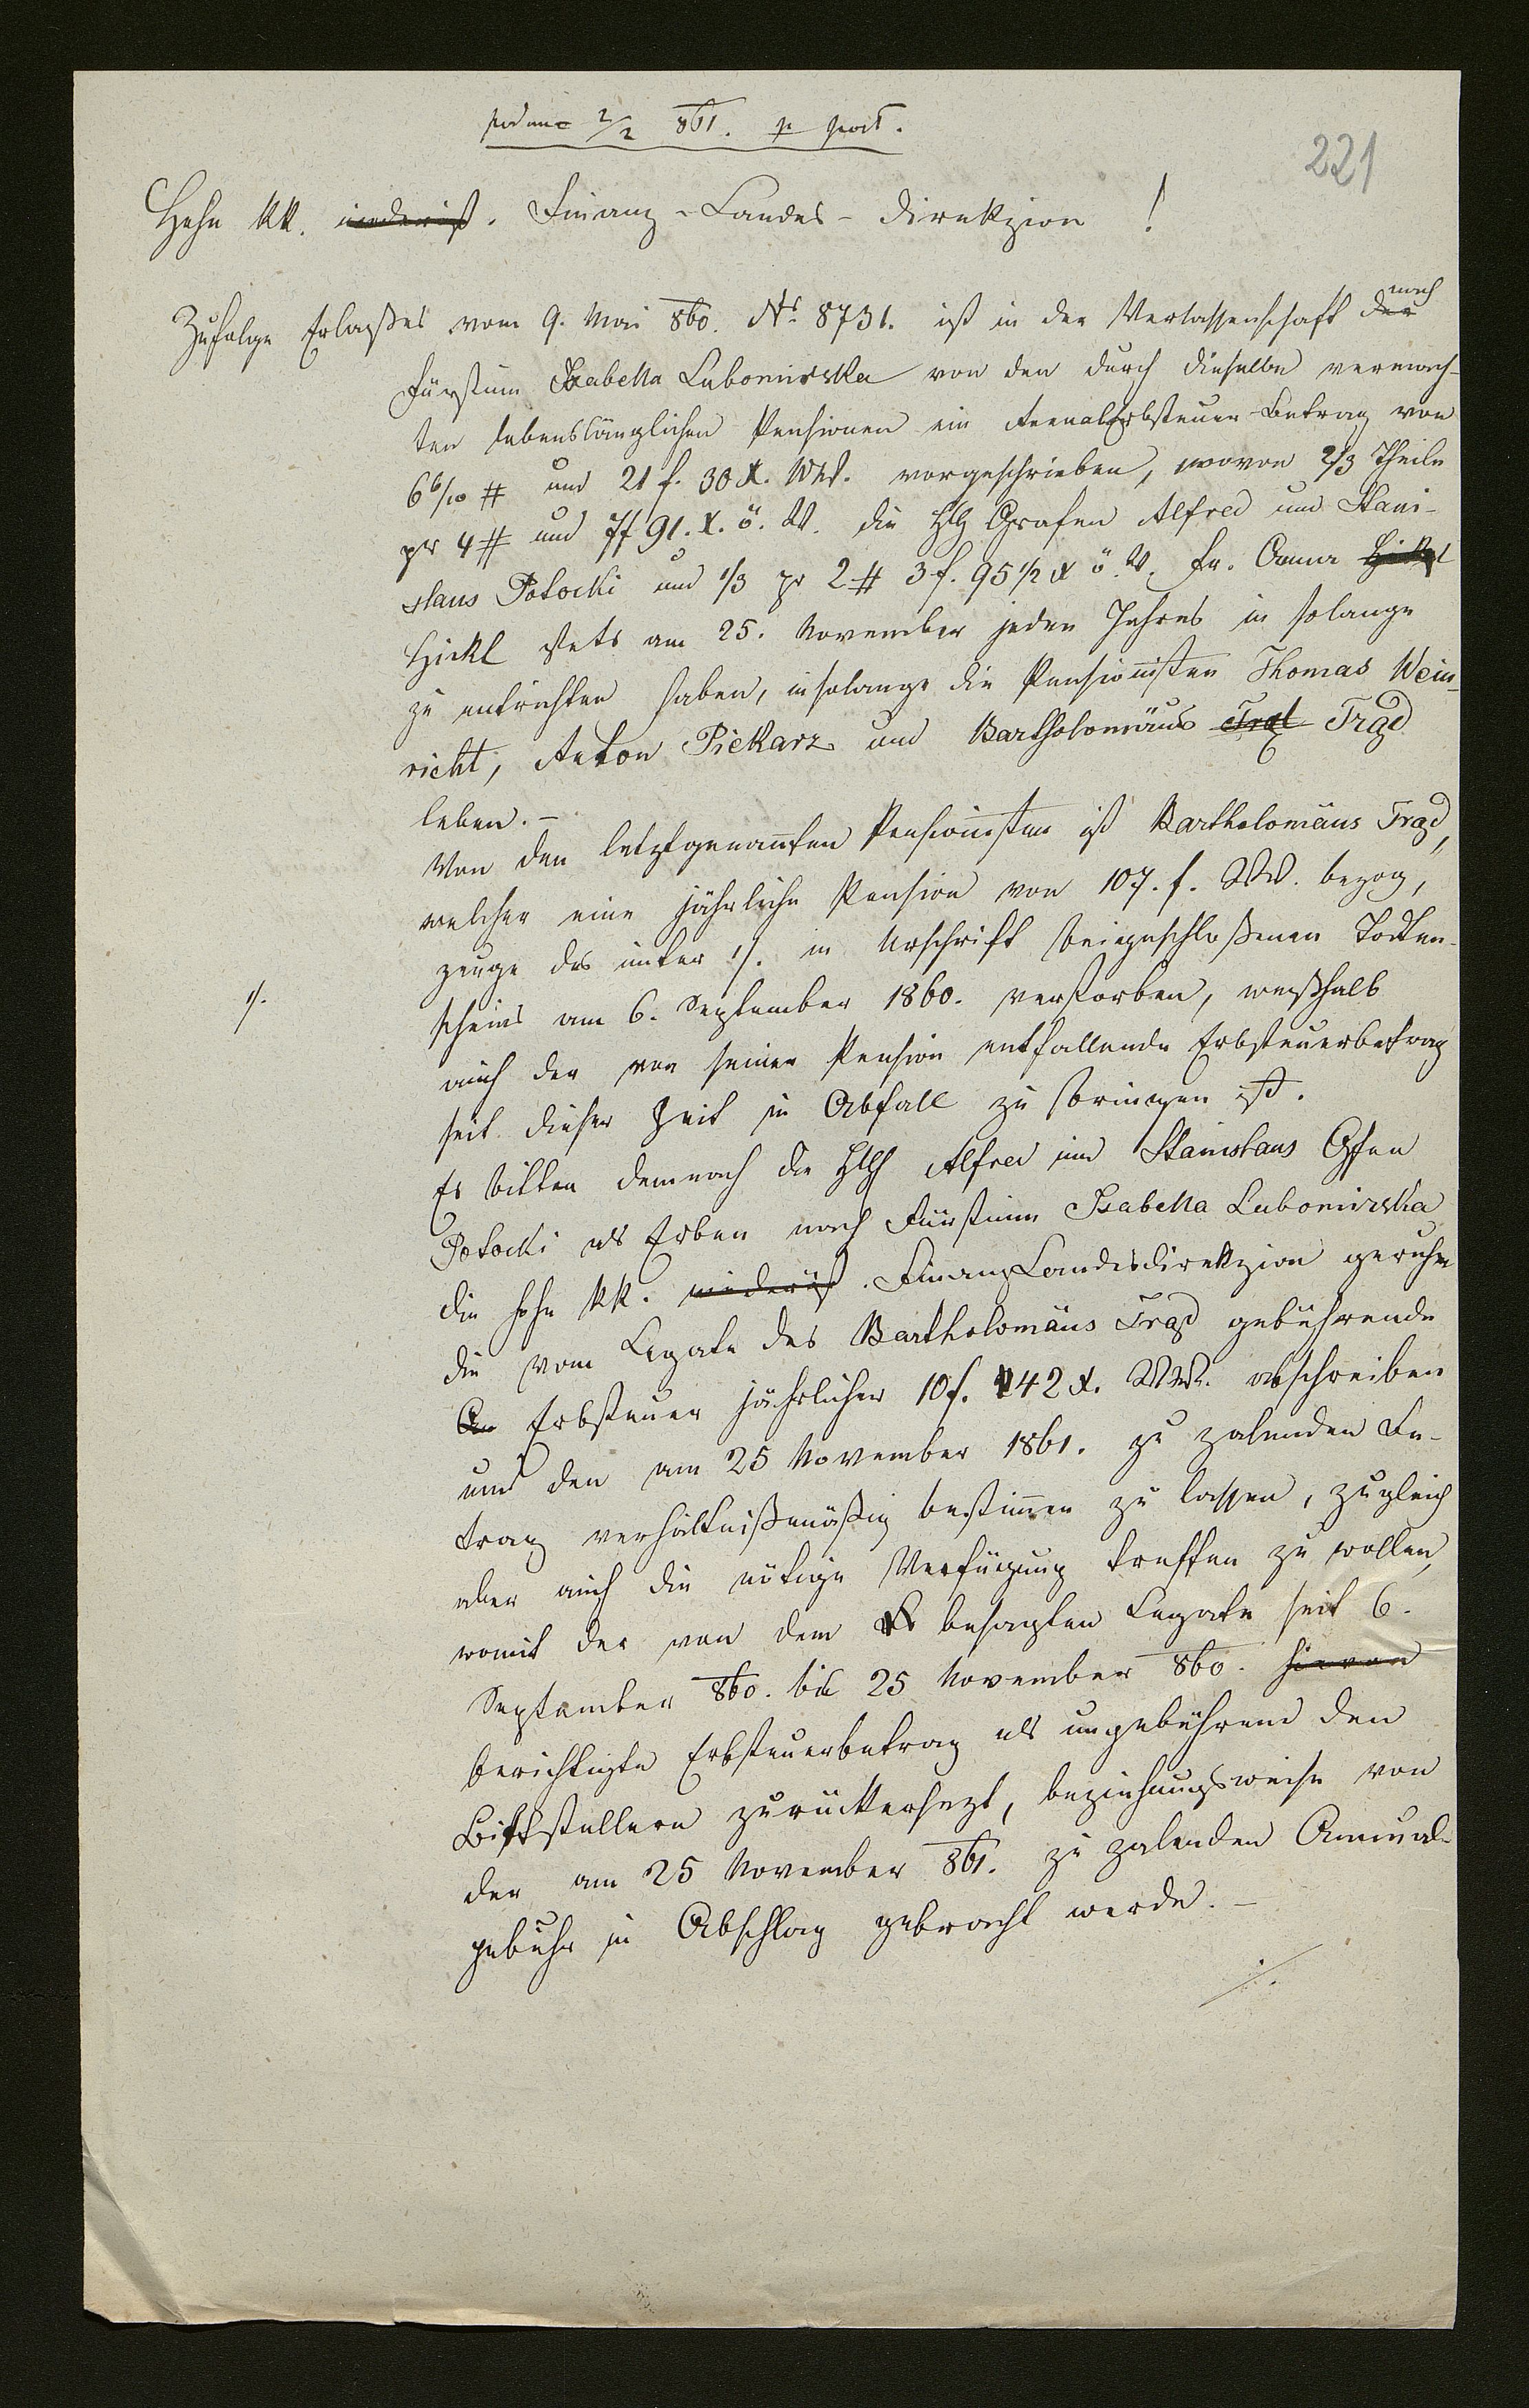 podane 2/2 861. p post.
221
Hohe kk. niederöst. Finanz-Landes-Direkzion!
Zufolge Erlaßes vom 9. Mai 860. No 8731. ist in der Verlassenschaft der nach
Fürstinn Isabella Lubomirska von den durch dieselbe vermach-
ten lebenslänglichen Pensionen ein Annalerbsteuer-Betrag von
6 6/10 # und 21 f. 30 x. WW. vorgeschrieben, wovon 2/3 Theile
pr 4 # und 7 f 91. x. ö. W. die HH Grafen Alfred und Stani-
slaus Potocki und 1/3 pr 2 # 3 f. 95 1/2 x ö. W. Fr. Anna Hickl
Hickl stets am 25. November jeden Jahres in solange
zu entrichten haben, insolange die Pensionisten Thomas Wein-
richt, Anton Piekarz und Bartholomäus Trgl Trgd
leben. –
Von den letztgenannten Pensionisten ist Bartholomäus Trgd,
welcher eine jährliche Pension von 107. f. WW. bezog,
zeuge des unter 1/. in Urschrift beigeschloßenen Todten-
1/.
scheins am 6. September 1860. verstorben, weßhalb
auch der von seiner Pension entfallende Erbsteuerbetrag
seit dieser Zeit in Abfall zu bringen ist.
Es bitten demnach die HH Alfred und Stanislaus Gfen
Potocki als Erben nach Fürstinn Isabella Lubomirska
die hohe kk. niederöst. Finanz Landesdirekzion geruhe
die vom Legate des Bartholomäus Trgd gebührende
An Erbsteuer jährlicher 10 f. 42 x. WW. abschreiben
und den am 25 November 1861. zu zalenden Be-
trag verhältnißmäßig bestimmen zu lassen, zugleich
aber auch die nötige Verfügung treffen zu wollen,
womit der von dem besagten Legate seit 6.
September 860. bis 25 November 860. hievon
berichtigte Erbsteuerbetrag als ungebührend den
Bittstellern zurückersezt, beziehungsweise von
der am 25 November 861. zu zalenden Annual-
gebühr in Abschlag gebracht werde. –
./.